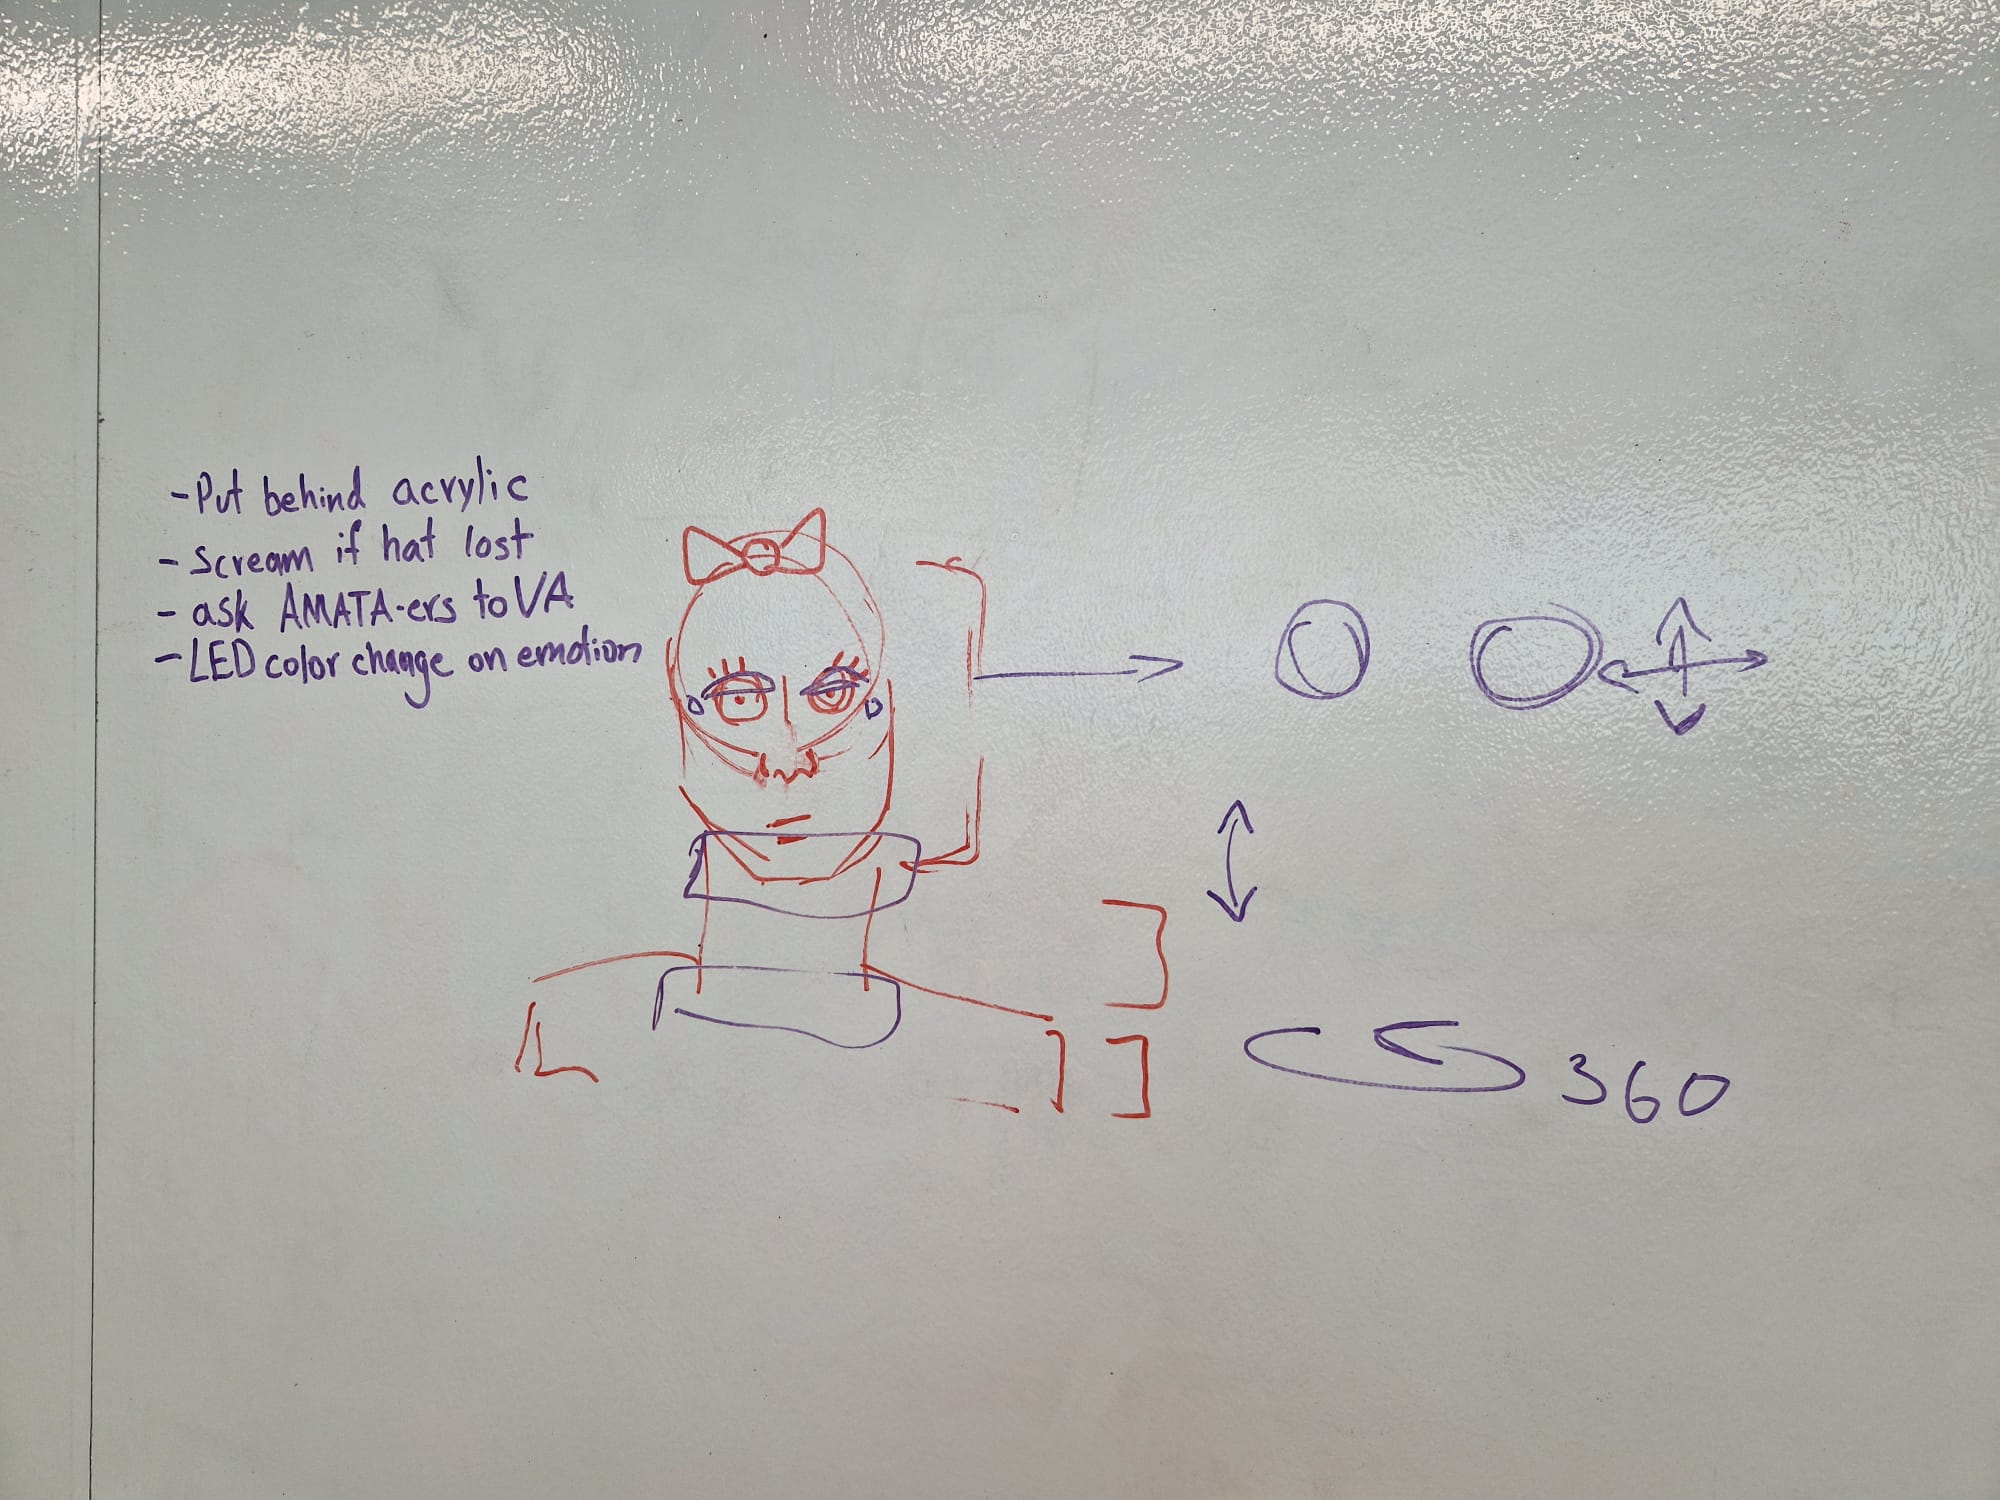 - Put behind acrylic
- scream if hat lost
- ask AMATA-ers to VA
- LED color change on emotion
360